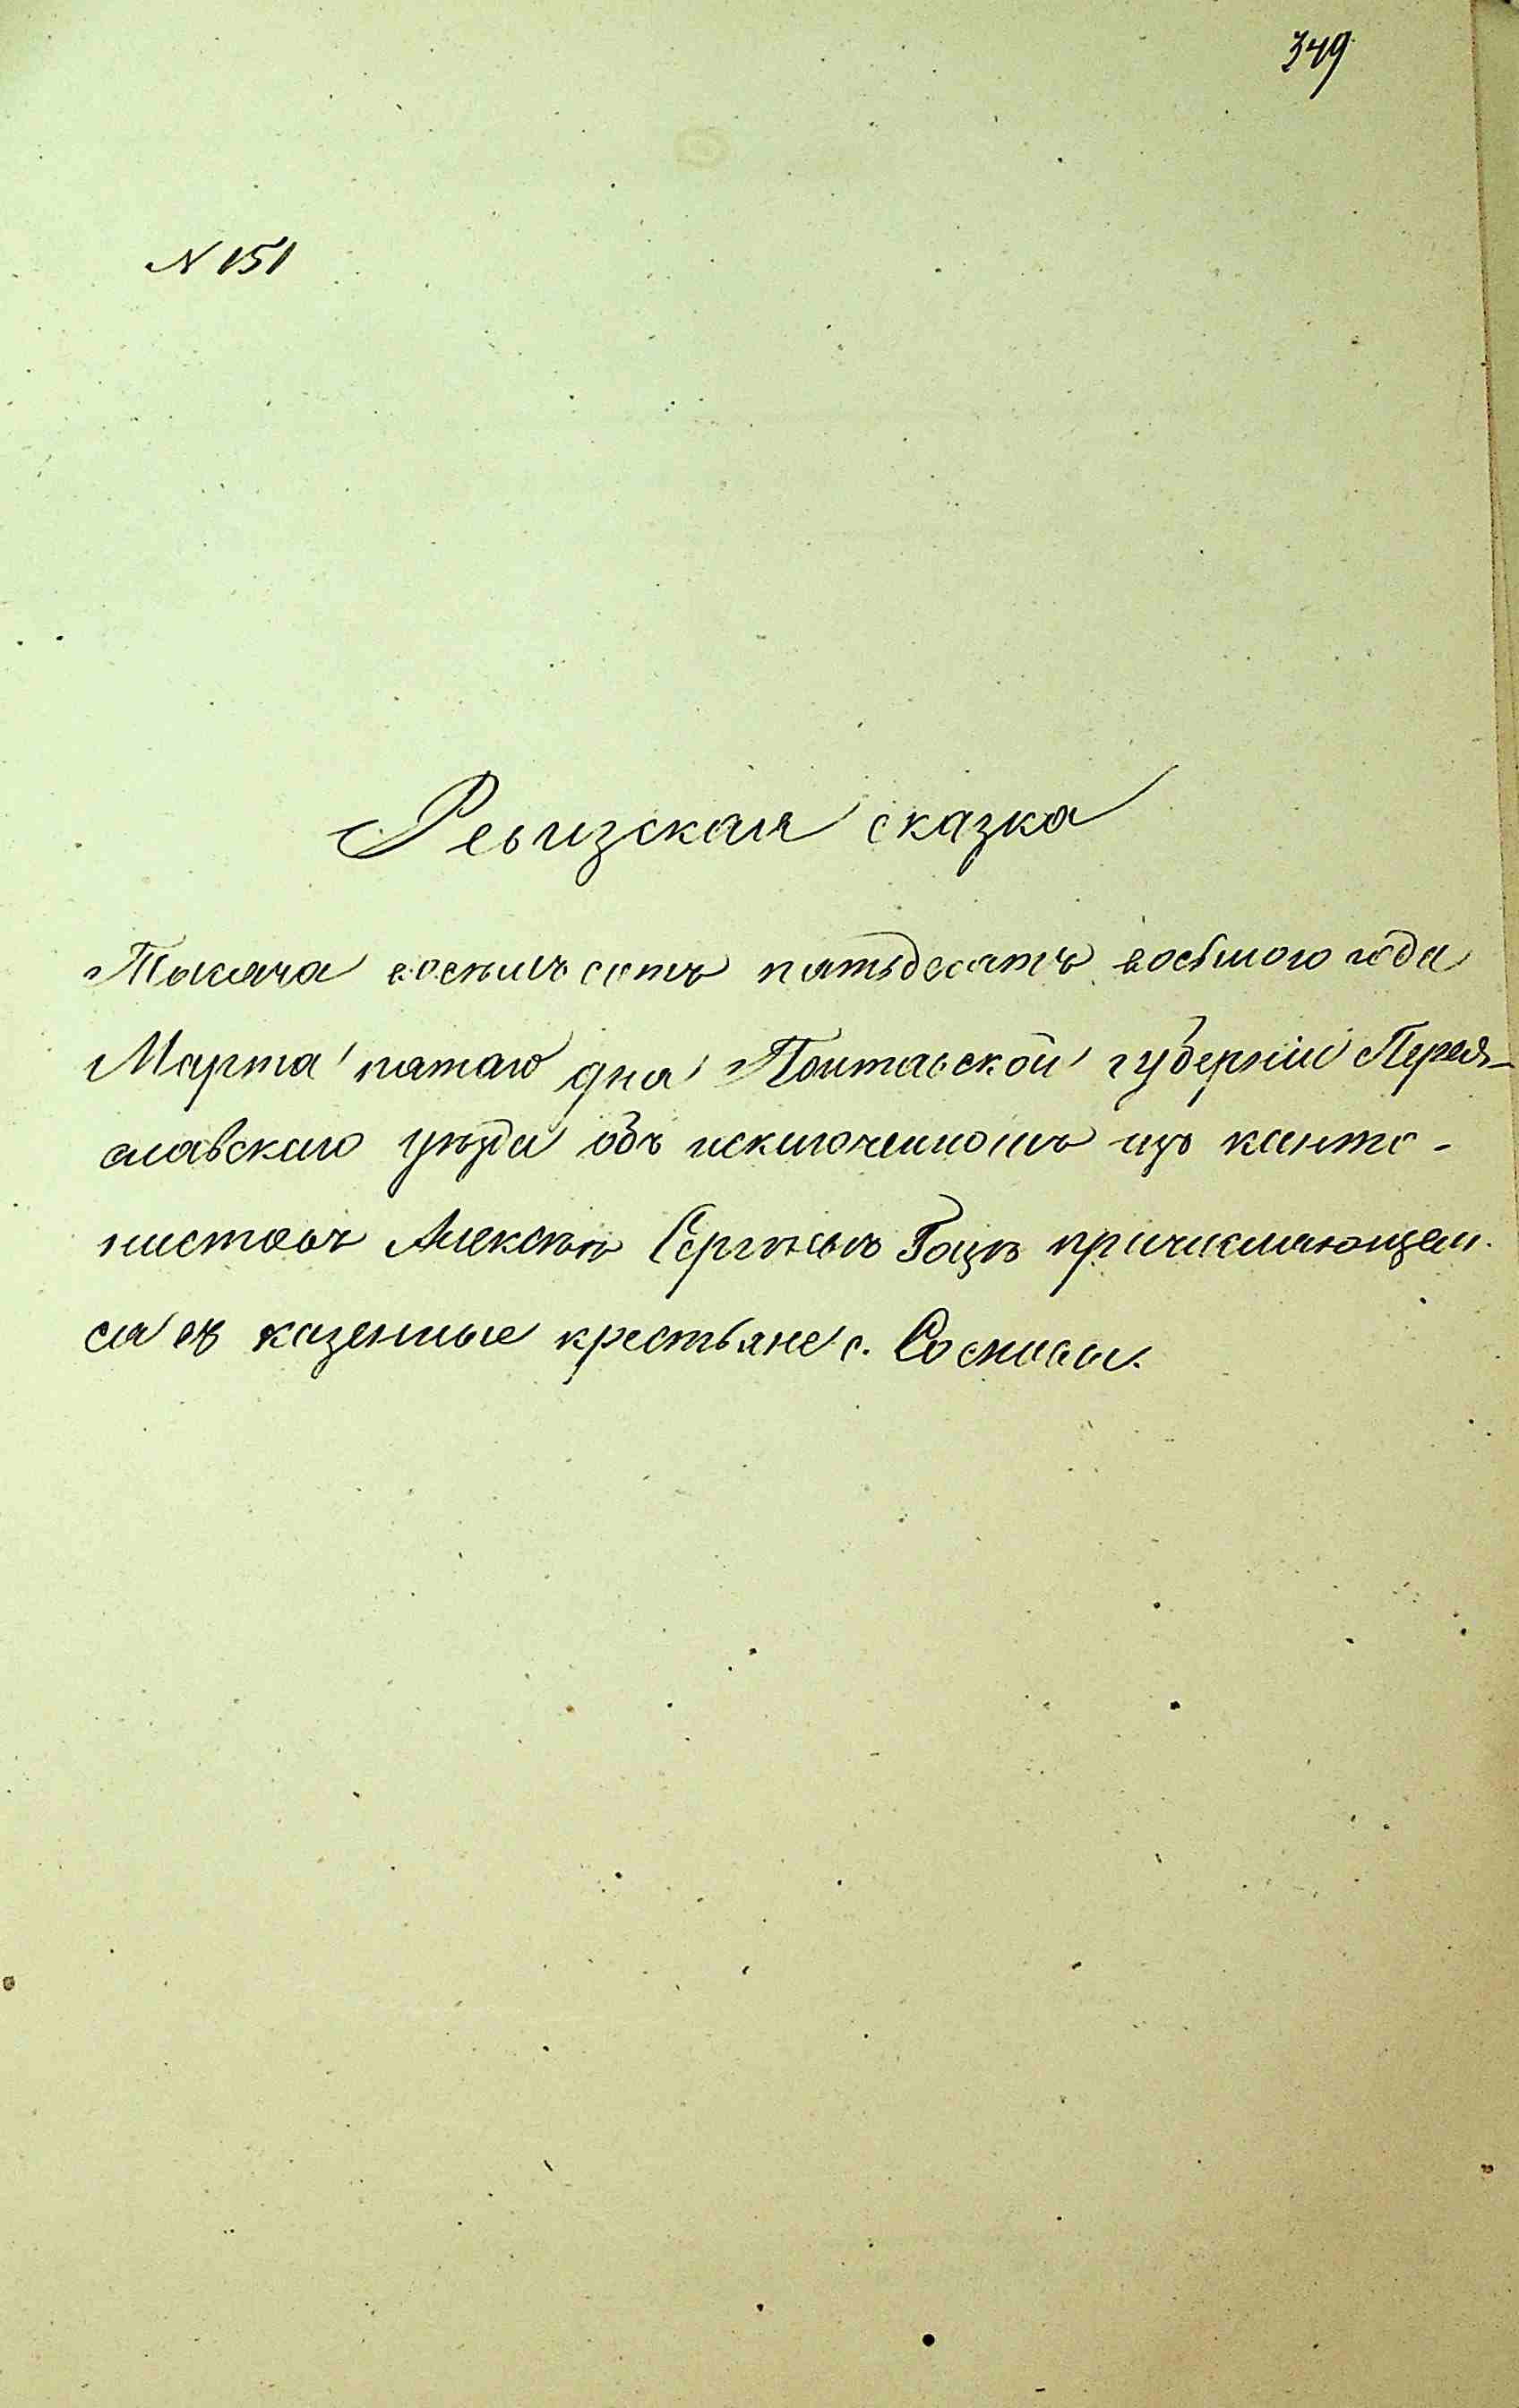 349
N 151
Ревизская сказка
Тысяча восемь сотъ пятьдесятъ восьмого года
Марта пятаго дня Полтавской губерніи Перея-
славскаго уѣзда объ исключенномъ изъканто-
нистовъ Алексѣѣ Сергѣевѣ причисляющем-
ся въ казенные крестьяне с. Сосновы.